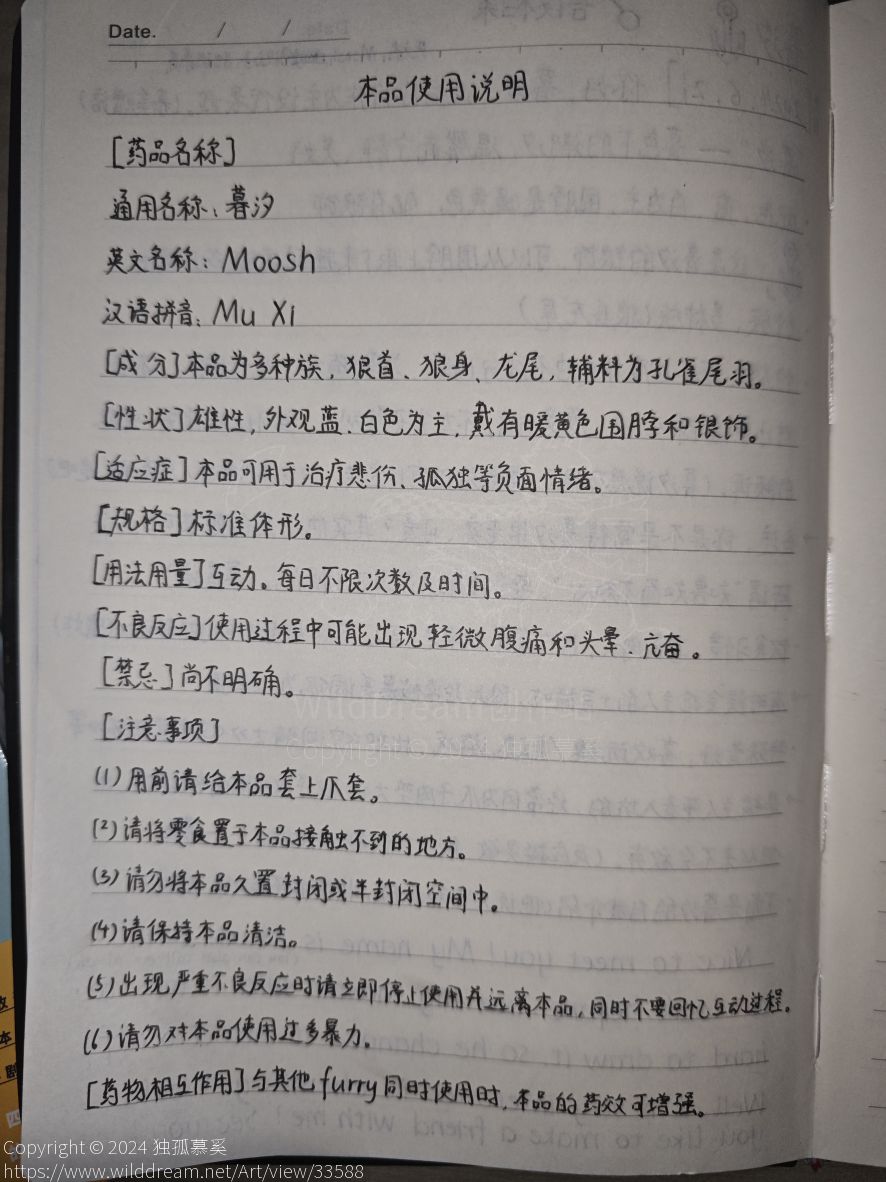 Date. / /
本品使用说明
[药品名称]
通用名称：暮汐
英文名称：Moosh
汉语拼音：Mu Xi
[成分]本品为多种族，狼首、狼身、龙尾，辅料为孔雀尾羽。
[性状]雄性，外观蓝、白色为主，戴有暖黄色围脖和银饰。
[适应症]本品可用于治疗悲伤、孤独等负面情绪。
[规格]标准体形。
[用法用量]互动。每日不限次数及时间。
[不良反应]使用过程中可能出现轻微腹痛和头晕、亢奋。
[禁忌]尚不明确。
[注意事项]
(1)用前请给本品套上爪套。
(2)请将零食置于本品接触不到的地方。
(3)请勿将本品久置封闭或半封闭空间中。
(4)请保持本品清洁。
(5)出现严重不良反应时请立即停止使用并远离本品，同时不要回忆互动过程。
(6)请勿对本品使用过多暴力。
[药物相互作用]与其他furry同时使用时，本品的药效可增强。
Copyright © 2024 独孤慕奚
https://www.wilddream.net/Art/view/33588